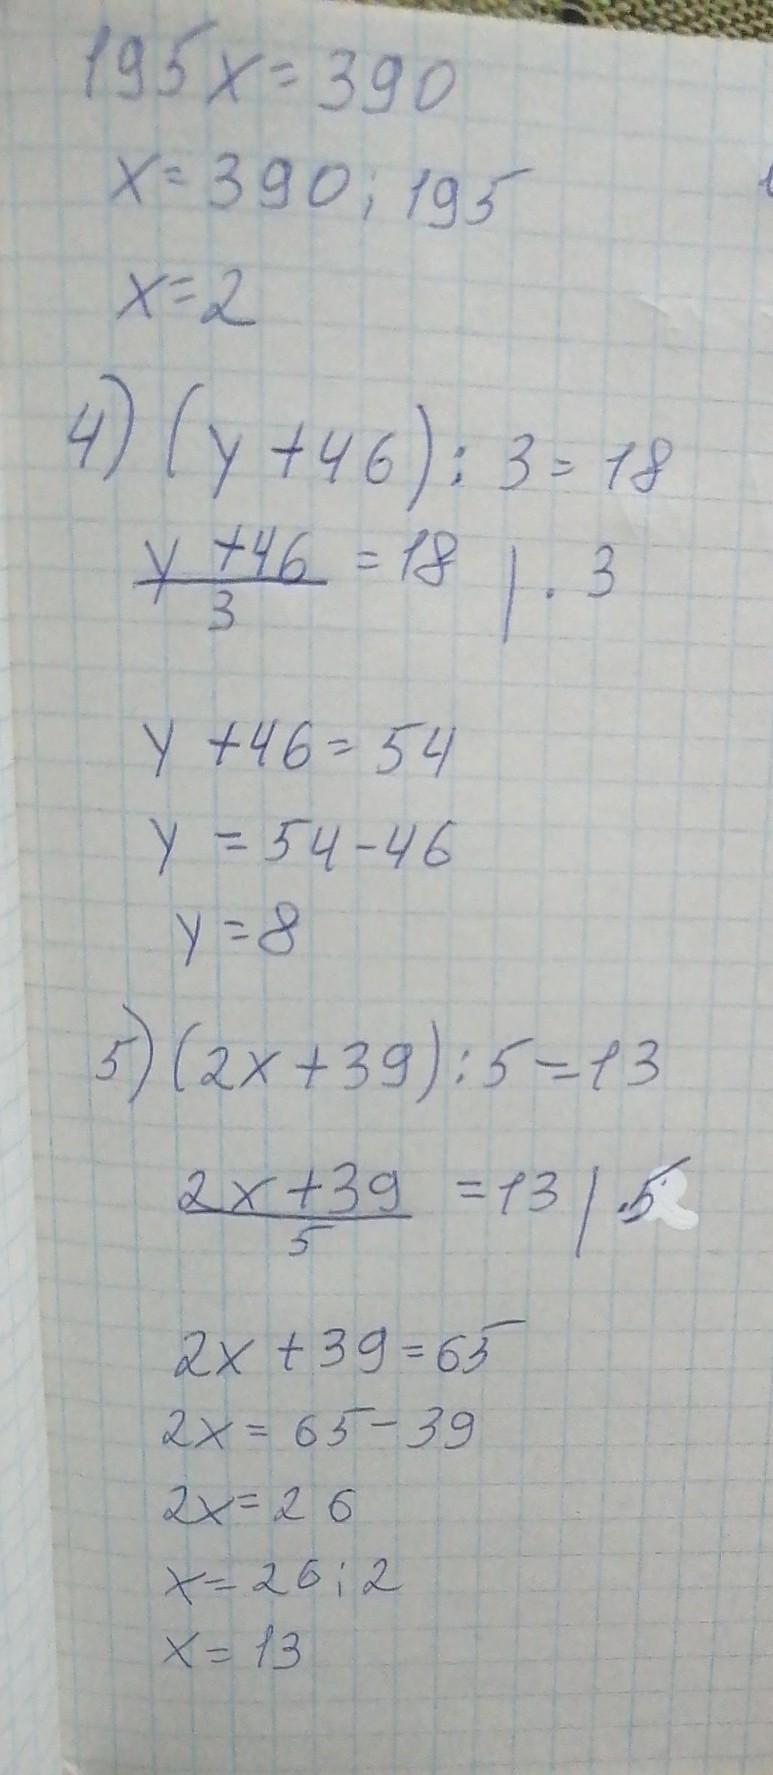 195x=390
x=390:195
x=2
4) (y+46):3=18
y+46
3
=18 | · 3
y+46=54
y=54-46
y=8
5) (2x+39):5=13
2x+39
5
=13 | ·5
2x+39=65
2x=65-39
2x=26
x=26:2
x=13